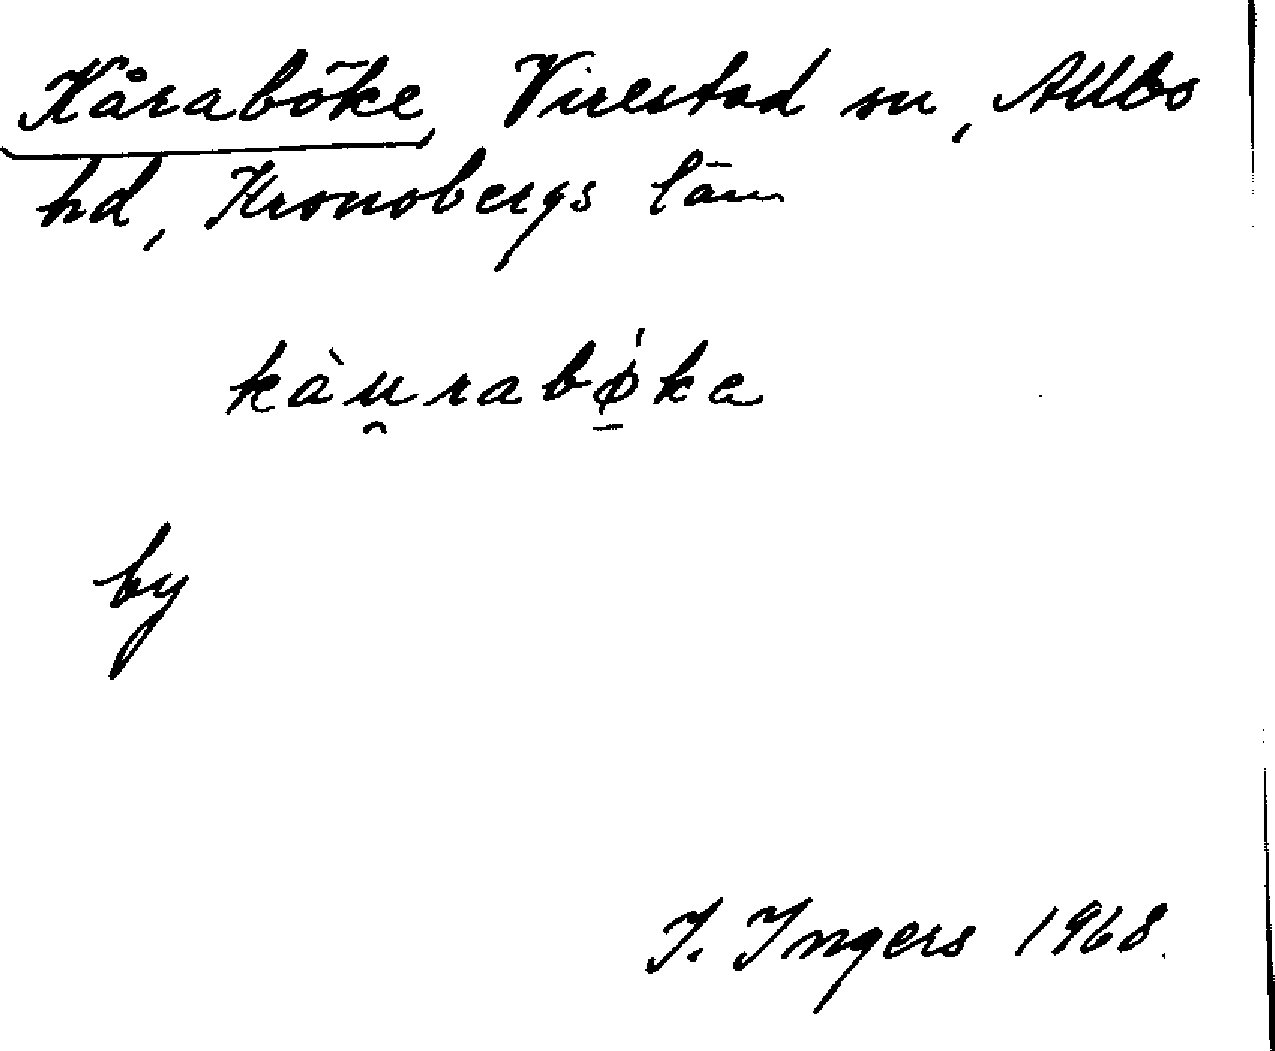 Kåraböke, Virestad sn, Allbo
hd, Kronobergs län
kàu̯rabǿ̱ka
by
I. Ingers 1968.